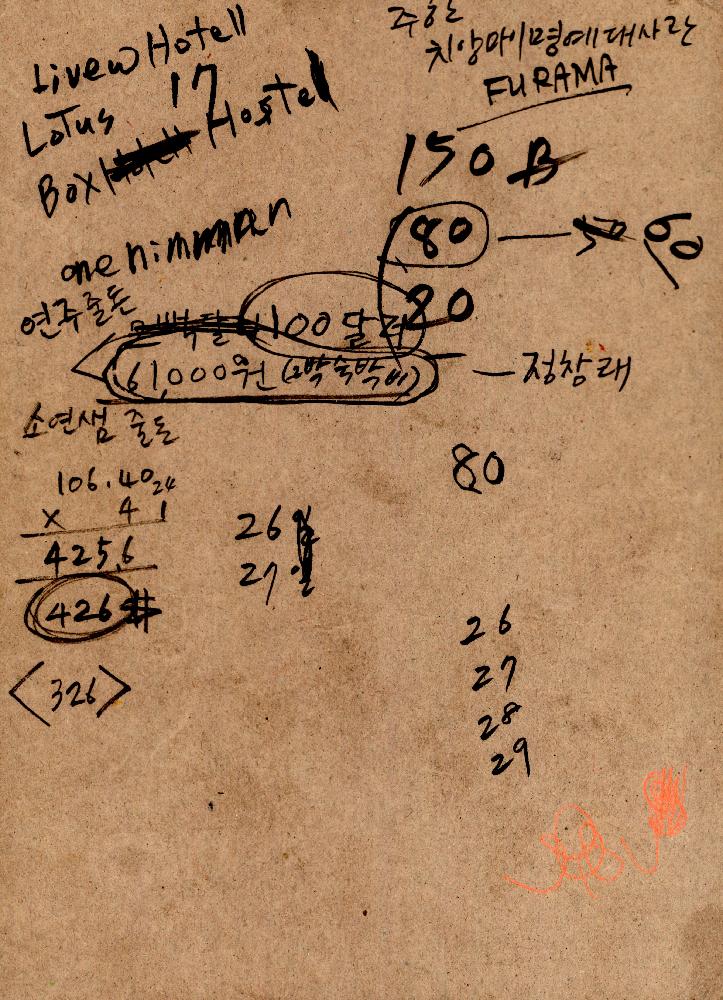 Livew Hotell
LoTus 17
Box Hostel
one nimman
주한
치앙마이명예대사관
FURAMA
150 B
80 — 60
80
연주줄돈
100달러
61,000원 (2박숙박비) — 정창래
소연샘 줄돈
106.40 24
x 41
425.6
426 $
<326>
26일
27일
80
26
27
28
29